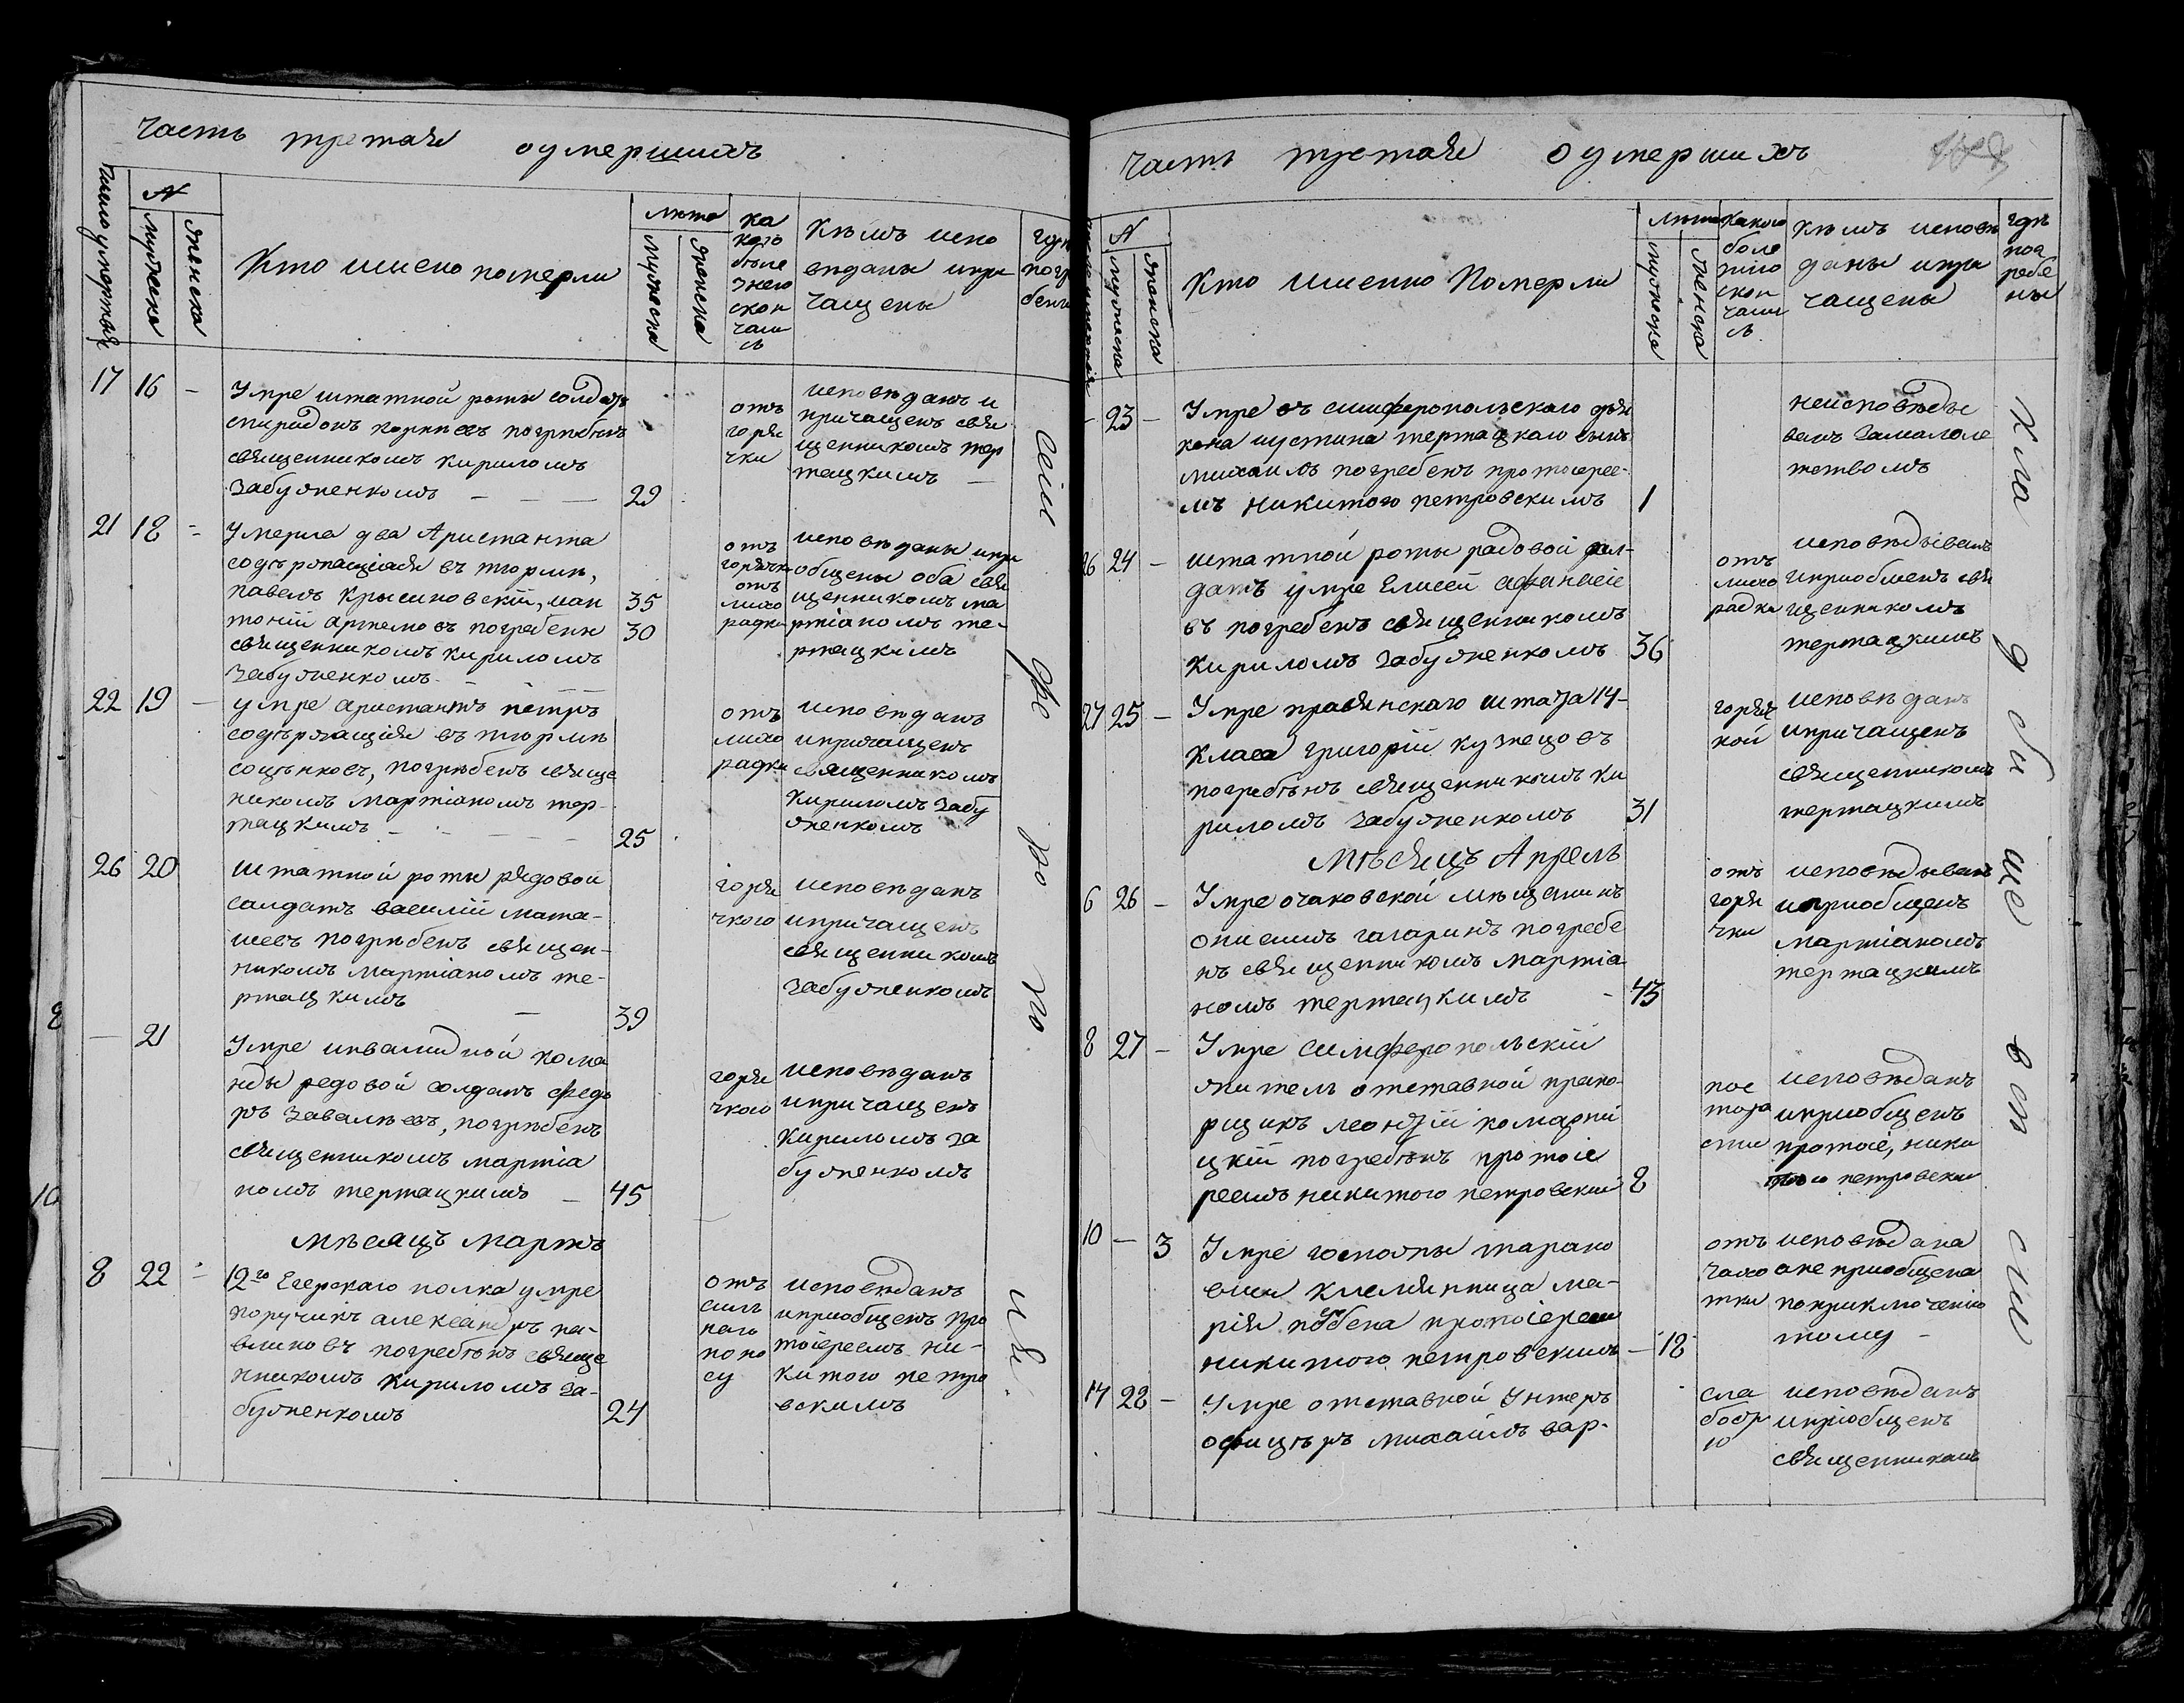 часть третая оумершихъ
число умертвія
N
мужеска
женска
Кто имено померли
лѣта
мужеска
женска
ка
кого
боле
знею
скон
чали
съ
Кѣмъ испо
веданы ипри
чащены
гдѣ
погр
бен
17 16 –
Умре штатной роты солдатъ
спиридонъ корнѣевъ погребенъ
священникомъ кириломъ
Забужненкомъ – – – 29
отъ
горя
чки
исповѣданъ и
причащенъ свя
щенникомъ тер
тацкимъ –
21 18 –
умерла два Аристанта
содѣржащіася въ тюрмѣ,
павелъ Крысиновскій, иан 35
тоній Артемовъ погребены 30
священникомъ кириломъ
Забужненкомъ
отъ
горячки
отъ
лихо
радки
исповѣданы ипри
общены оба свя
щенникомъ ма
ртіаномъ те-
ртацкимъ
22 19 –
умре аристантъ петръ
содѣржащійя въ тюрмѣ
сощѣнковъ, погрѣбенъ свяще
никомъ мартіаномъ тер-
тацкимъ – – – 25
отъ
лихо
радки
исповѣданъ
ипричащенъ
священникомъ
Кириломъ Забу
жненкомъ
26 20
штатной роты рядовой
салдатъ василій мата-
шевъ погрѣбенъ священ-
никомъ мартіаномъ те-
ртацкимъ – 39
горя
чкою
исповѣданъ
ипричащенъ
священникомъ
Забужненкомъ
– 21
Умре инвалидной кома
нды редовой солдатъ федо
ръ Завалѣевъ, погрѣбенъ
священникомъ мартіа
номъ тертацкимъ – 45
горя
чкою
исповѣданъ
ипричащенъ
Кириломъ за
бужненкомъ
мѣсяцъ мартъ
8 22 –
12го Егерскаго полка умре
поручикъ александръ па-
влиновъ погребѣнъ свяще
нникомъ Кириломъ за-
бужненкомъ 24
отъ
силь
наго
поно
су
исповѣданъ
иприобщенъ про
тоіереемъ ни-
китою петро
вскимъ
часть третая оумершихъ
N
мужеска
женска
Кто именно Померли
лѣта
мужеска
женска
какою
боле
знію
скон
чали
съ
Кѣмъ исповѣ
даны ипри
чащены
гдѣ
пог
ребе
ны
– 23 –
Умре въ симферопольскаго дья
кона иустина тертацкаго сынъ
михаилъ погребенъ протоіерее-
мъ никитою петровскимъ 1
неисповѣды
ванъ замалоле
тствомъ
26 24 –
штатной роты радовой сал-
датъ умре Елисей афанасіе
въ погребенъ священникомъ
Кириломъ Забужненкомъ 36
отъ
лихо
радки
исповѣдыванъ
иприобщенъ свя
щенникомъ
тертацкимъ
27 25 –
Умре правянскаго штата 14-
класа григорій кузнецовъ
погребѣнъ священникомъ Ки
риломъ Забужненкомъ 31
горяч
кой
исповѣданъ
ипричащенъ
священникомъ
тертацкимъ
Мѣсяцъ Апрель
6 26 –
Умре очаковской мѣщанинъ
онисимъ гагаринъ погребе
нъ священникомъ мартіа
номъ тертацкимъ – 43
отъ
горя
чки
исповѣдыванъ
иприобщенъ
мартіаномъ
тертацкимъ
8 27 –
Умре симферопольскій
житель отставной прапо-
рщикъ леонтій комарни
цкій погребѣнъ протоіе
реемъ никитою петровский 8
исповѣданъ
иприобщенъ
протоіе, ники
тою петровски
10 – 3
Умре госпожи тарано
вича племянница ма-
рія погребена протоіереем
никитою петровскимъ – 18
отъ
чахо
тки
исповѣдана
ане приобщена
поприключенію
тому –
14 28 –
Умре отставной Унтеръ
офицѣръ михаилъ вар-
сла
бостi
ю
исповѣданъ
иприобщенъ
священникамъ